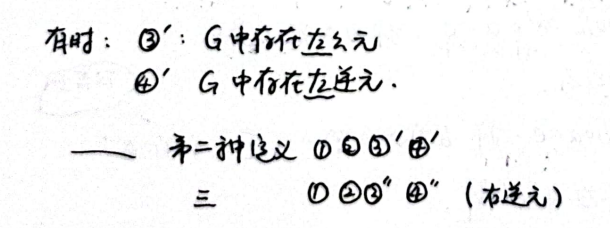 有时: ③′: G中存在左幺元
④′ G中存在左逆元.
—— 第二种定义 ①②③′④′
三 ①②③″④″ (右逆元)